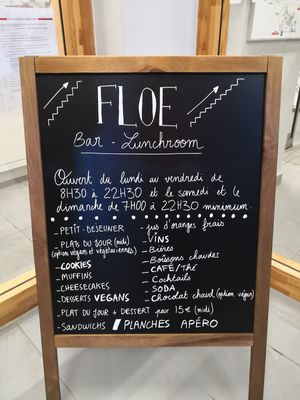 FLOE
Bar - Lunchroom
Ouvert du lundi au vendredi de
8H30 à 22H30 et le samedi et le
dimanche de 7H00 à 22H30 minimum.
- PETIT-DEJEUNER
- PLATS DU JOUR (midi)
(option végans et végétariennes)
- COOKIES
- MUFFINS
- CHEESECAKES
- DESSERTS VEGANS
- jus d'oranges frais
- VINS
- Bières
- Boissons chaudes
- CAFÉ/THÉ
- Cocktails
- SODA
- Chocolat chaud (option végan)
- PLAT DU JOUR + DESSERT par 15€ (midi)
- SANDWICHS / PLANCHES APÉRO